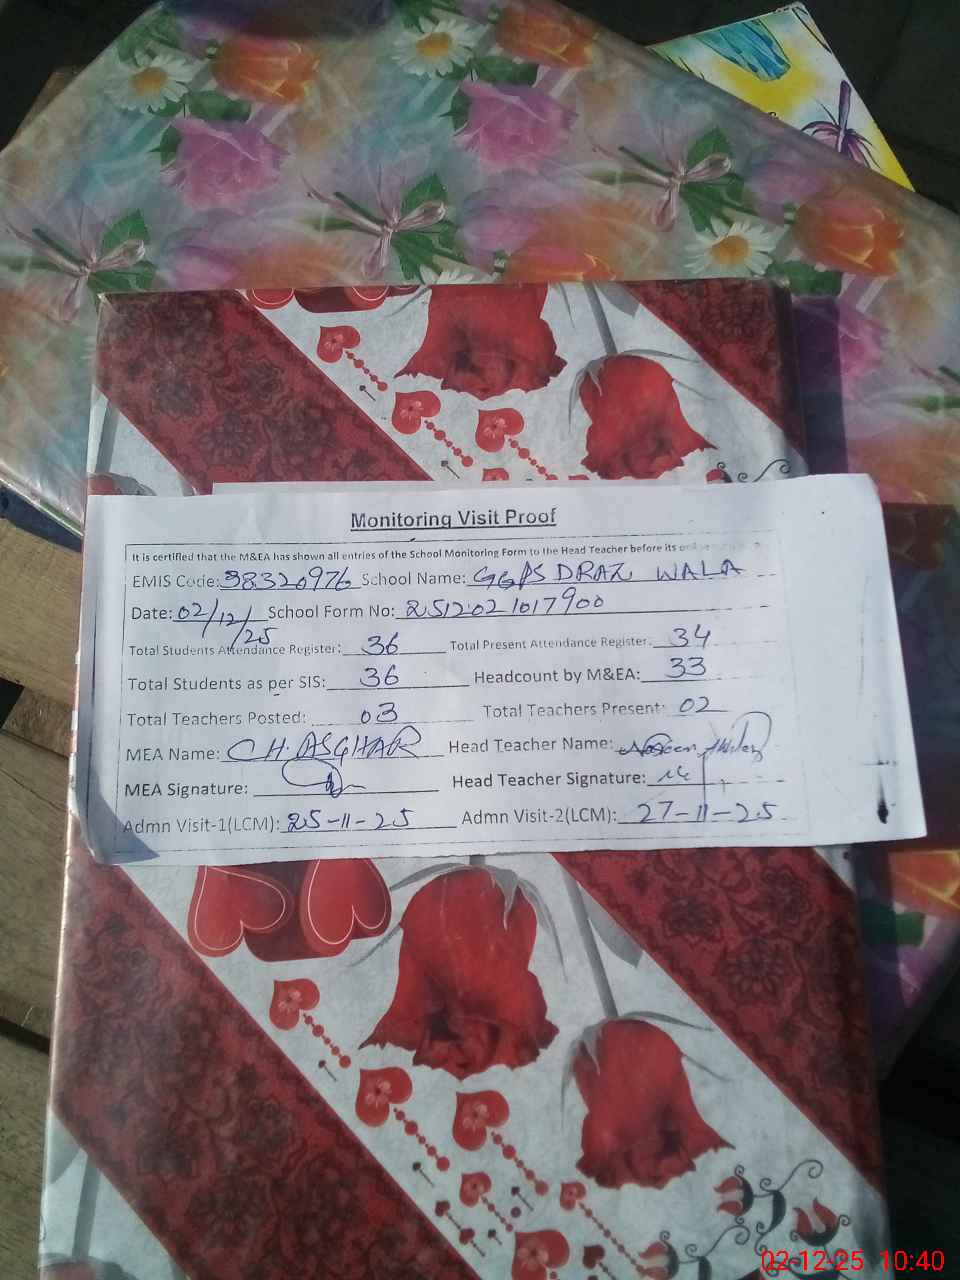 Monitoring Visit Proof
It is certified that the M&EA has shown all entries of the School Monitoring Form to the Head Teacher before its
EMIS Code: 38320976 School Name: GGPS DRAZ WALA
Date: 02/12/25 School Form No: 2512021017900
Total Students Attendance Register: 36 Total Present Attendance Register: 34
Total Students as per SIS: 36 Headcount by M&EA: 33
Total Teachers Posted: 03 Total Teachers Present: 02
MEA Name: CH. ASGHAR Head Teacher Name:
MEA Signature: Head Teacher Signature:
Admn Visit-1(LCM): 25-11-25 Admn Visit-2(LCM): 27-11-25
02-12-25 10:40